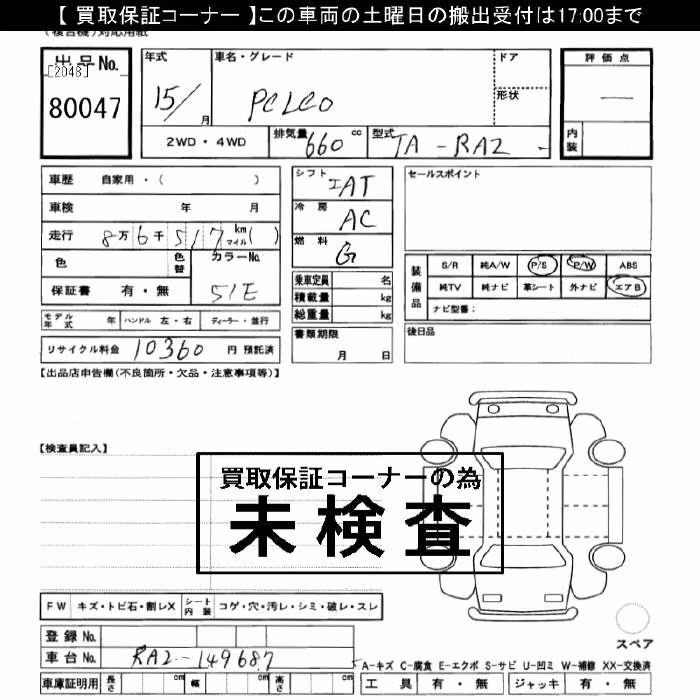 【 買取保証コーナー 】この車両の土曜日の搬出受付は17:00まで
出品No.
[2048]
80047
年式
15/
月
車名・グレード
PCLCO
ドア
形状
評価点
—
内装
2WD・4WD
排気量 660 cc
型式 TA-RA2
車歴 自家用・( )
車検 年 月
走行 8万6千517 km マイル( )
色
色替
カラーNo.
51E
保証書 有・無
シフト IAT
冷房 AC
燃料 G
乗車定員 名
積載量 kg
総重量 kg
セールスポイント
装備品
S/R 純A/W P/S P/W ABS
純TV 純ナビ 革シート 外ナビ エアB
ナビ型番:
モデル年式 年 ハンドル 左・右 ディーラー・並行
リサイクル料金 10360 円 預託済
書類期限
月 日
後日品
【出品店申告欄(不良箇所・欠品・注意事項等)】
【検査員記入】
買取保証コーナーの為
未検査
FW キズ・トビ石・割レX シート内装 コゲ・穴・汚レ・シミ・破レ・スレ
スペア
登録No.
車台No. RA2-149687
A-キズ C-腐食 E-エクボ S-サビ U-凹ミ W-補修 XX-交換済
車庫証明用 長さ cm 幅 cm 高さ cm
工具 有・無 ジャッキ 有・無